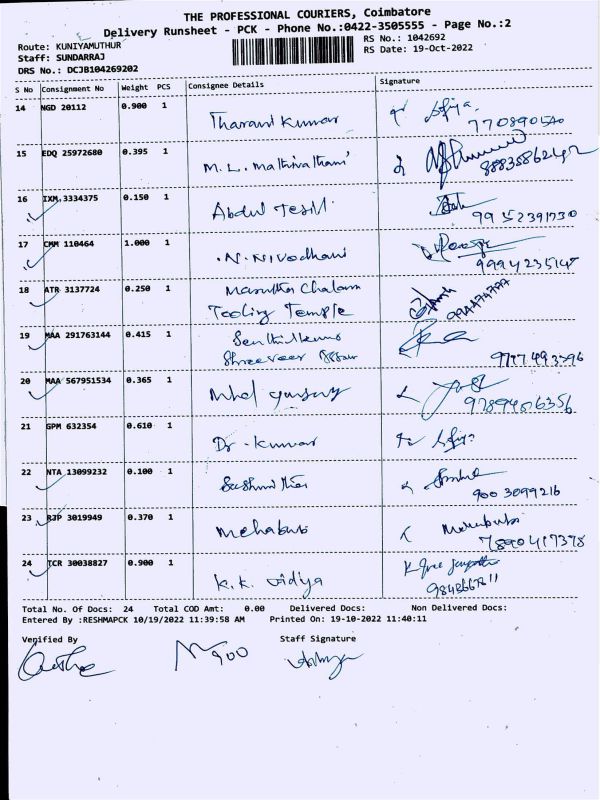 THE PROFESSIONAL COURIERS, Coimbatore
Delivery Runsheet - PCK - Phone No.:0422-3505555 - Page No.:2
Route: KUNIYAMUTHUR
RS No.: 1042692
Staff: SUNDARRAJ
RS Date: 19-Oct-2022
DRS No.: DCJB104269202
S No Consignment No Weight PCS Consignee Details Signature
14 NGD 20112 0.900 1
Tharani Kumar
770890540
15 EDQ 25972680 0.395 1
M.L. Mathivathani
16 IXM 3334375 0.150 1
Abdul
9952391730
17 CMM 110464 1.000 1
N. Nivodhani
9994235147
18 ATR 3137724 0.250 1
Marutha Chalam
Tooling Temple
19 MAA 291763144 0.415 1
Senthilkumar
20 MAA 567951534 0.365 1
Mhd
9789406356
21 GPM 632354 0.610 1
Dr. Kumar
22 NTA 13099232 0.100 1
9003099216
23 RJP 3019949 0.370 1
Mehabub
24 TCR 30038827 0.900 1
K.K. Vidya
Total No. Of Docs: 24 Total COD Amt: 0.00 Delivered Docs: Non Delivered Docs:
Entered By :RESHMAPCK 10/19/2022 11:39:58 AM Printed On: 19-10-2022 11:40:11
Verified By Staff Signature
900